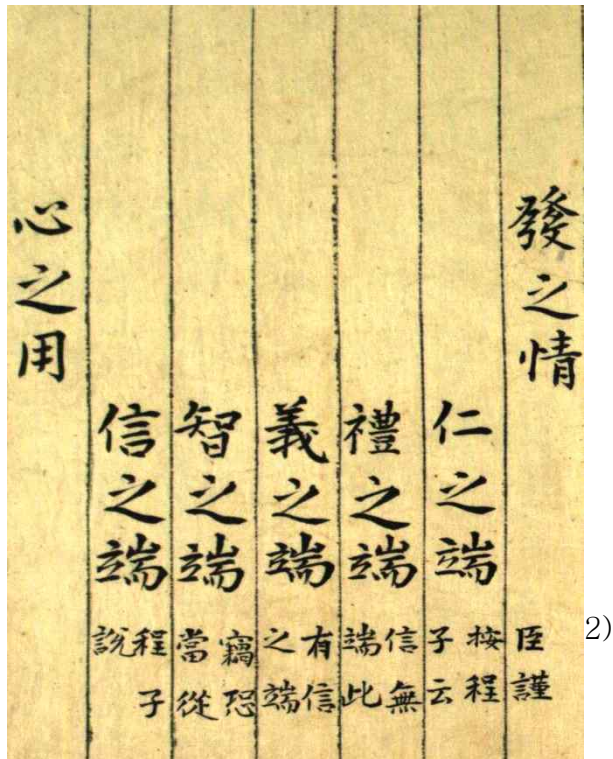 發之情
臣謹
仁之端
按程
子云
禮之端
信無
端此
義之端
有信
之端
智之端
竊恐
當從
信之端
程子
說
心之用
2)